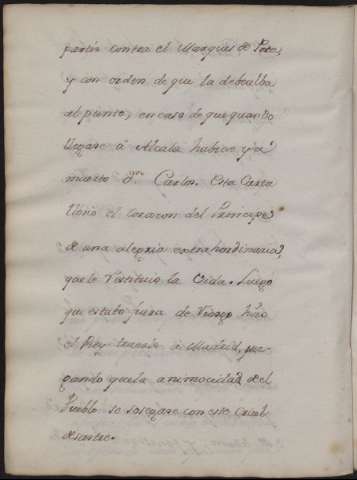 partir contra el Marques de Poza,
y con orden de que la debuelba
al punto, en caso de que quando
llegare á Alcala hubiese ya
muerto Dn. Carlos. Esta Carta
lleno el corazon del Principe
de una alegria extrahordinaria,
que le Restituio la Vida. Luego
que estubo fuera de Riesgo hizo
el Rey traerlo á Madrid, juz-
gando que la animocidad del
Pueblo se sosegase con este
desastre.